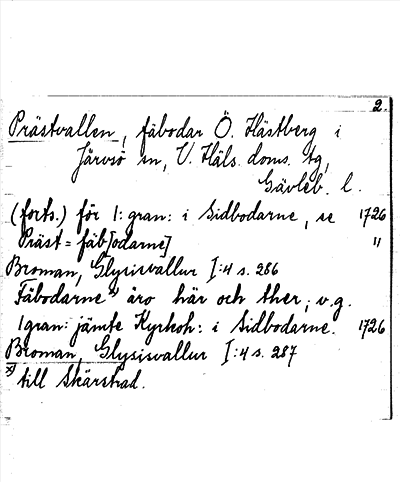 2.
Prästvallen, fäbodar Ö. Hästberg i
Järvsö sn, V. Häls. doms. tg,
Gävleb. l.
(forts.) för 1: gran: i Sidbodarne, se 1726
Präst=fäb[odarne] "
Broman, Glysisvallur I:4 s. 286
Fäbodarne x) äro här och ther; v.g.
1 gran: jämte Kyrkoh: i Sidbodarne. 1726
Broman, Glysisvallur I:4 s. 287
x) till Skärstad.